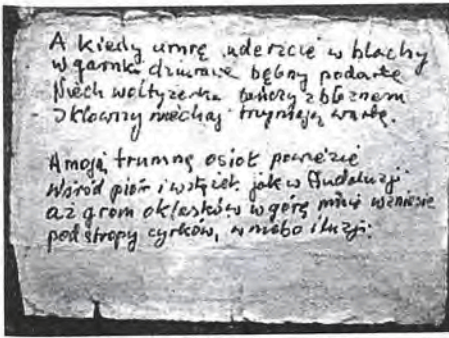 A kiedy umrę uderzcie w blachy
w garnki dziurawe bębny podarte
Niech woltyżerka tańczy z błaznem
I klowny niechaj trzymają wartę.
A moją trumnę osioł powiezie
Wśród piór i wstążek jak w Andaluzji
aż grom oklasków w górę mnie wzniesie
pod stropy cyrków, w niebo iluzji.